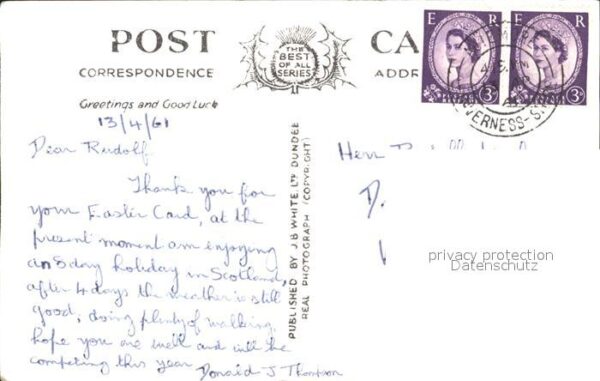 POST CA
THE
BEST
OF ALL
SERIES
CORRESPONDENCE ADDR
Greetings and Good Luck
13/4/61
Dear Rudolf
Thank you for
your Easter Card, at the
present moment am enjoying
an 8 day holiday in Scotland,
after 4 days the weather is still
good, doing plenty of walking.
hope you are well and will be
competing this year
Donald J Thompson
PUBLISHED BY J.B WHITE LTD DUNDEE
REAL PHOTOGRAPH (COPYRIGHT)
E R
POSTAGE
REVENUE
3D
E R
POSTAGE
REVENUE
3D
INVERNESS-S
Herr
D.
privacy protection
Datenschutz